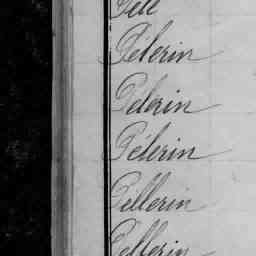 Pélé
Pélerin
Pélerin
Pélerin
Pillerin
Pellerin